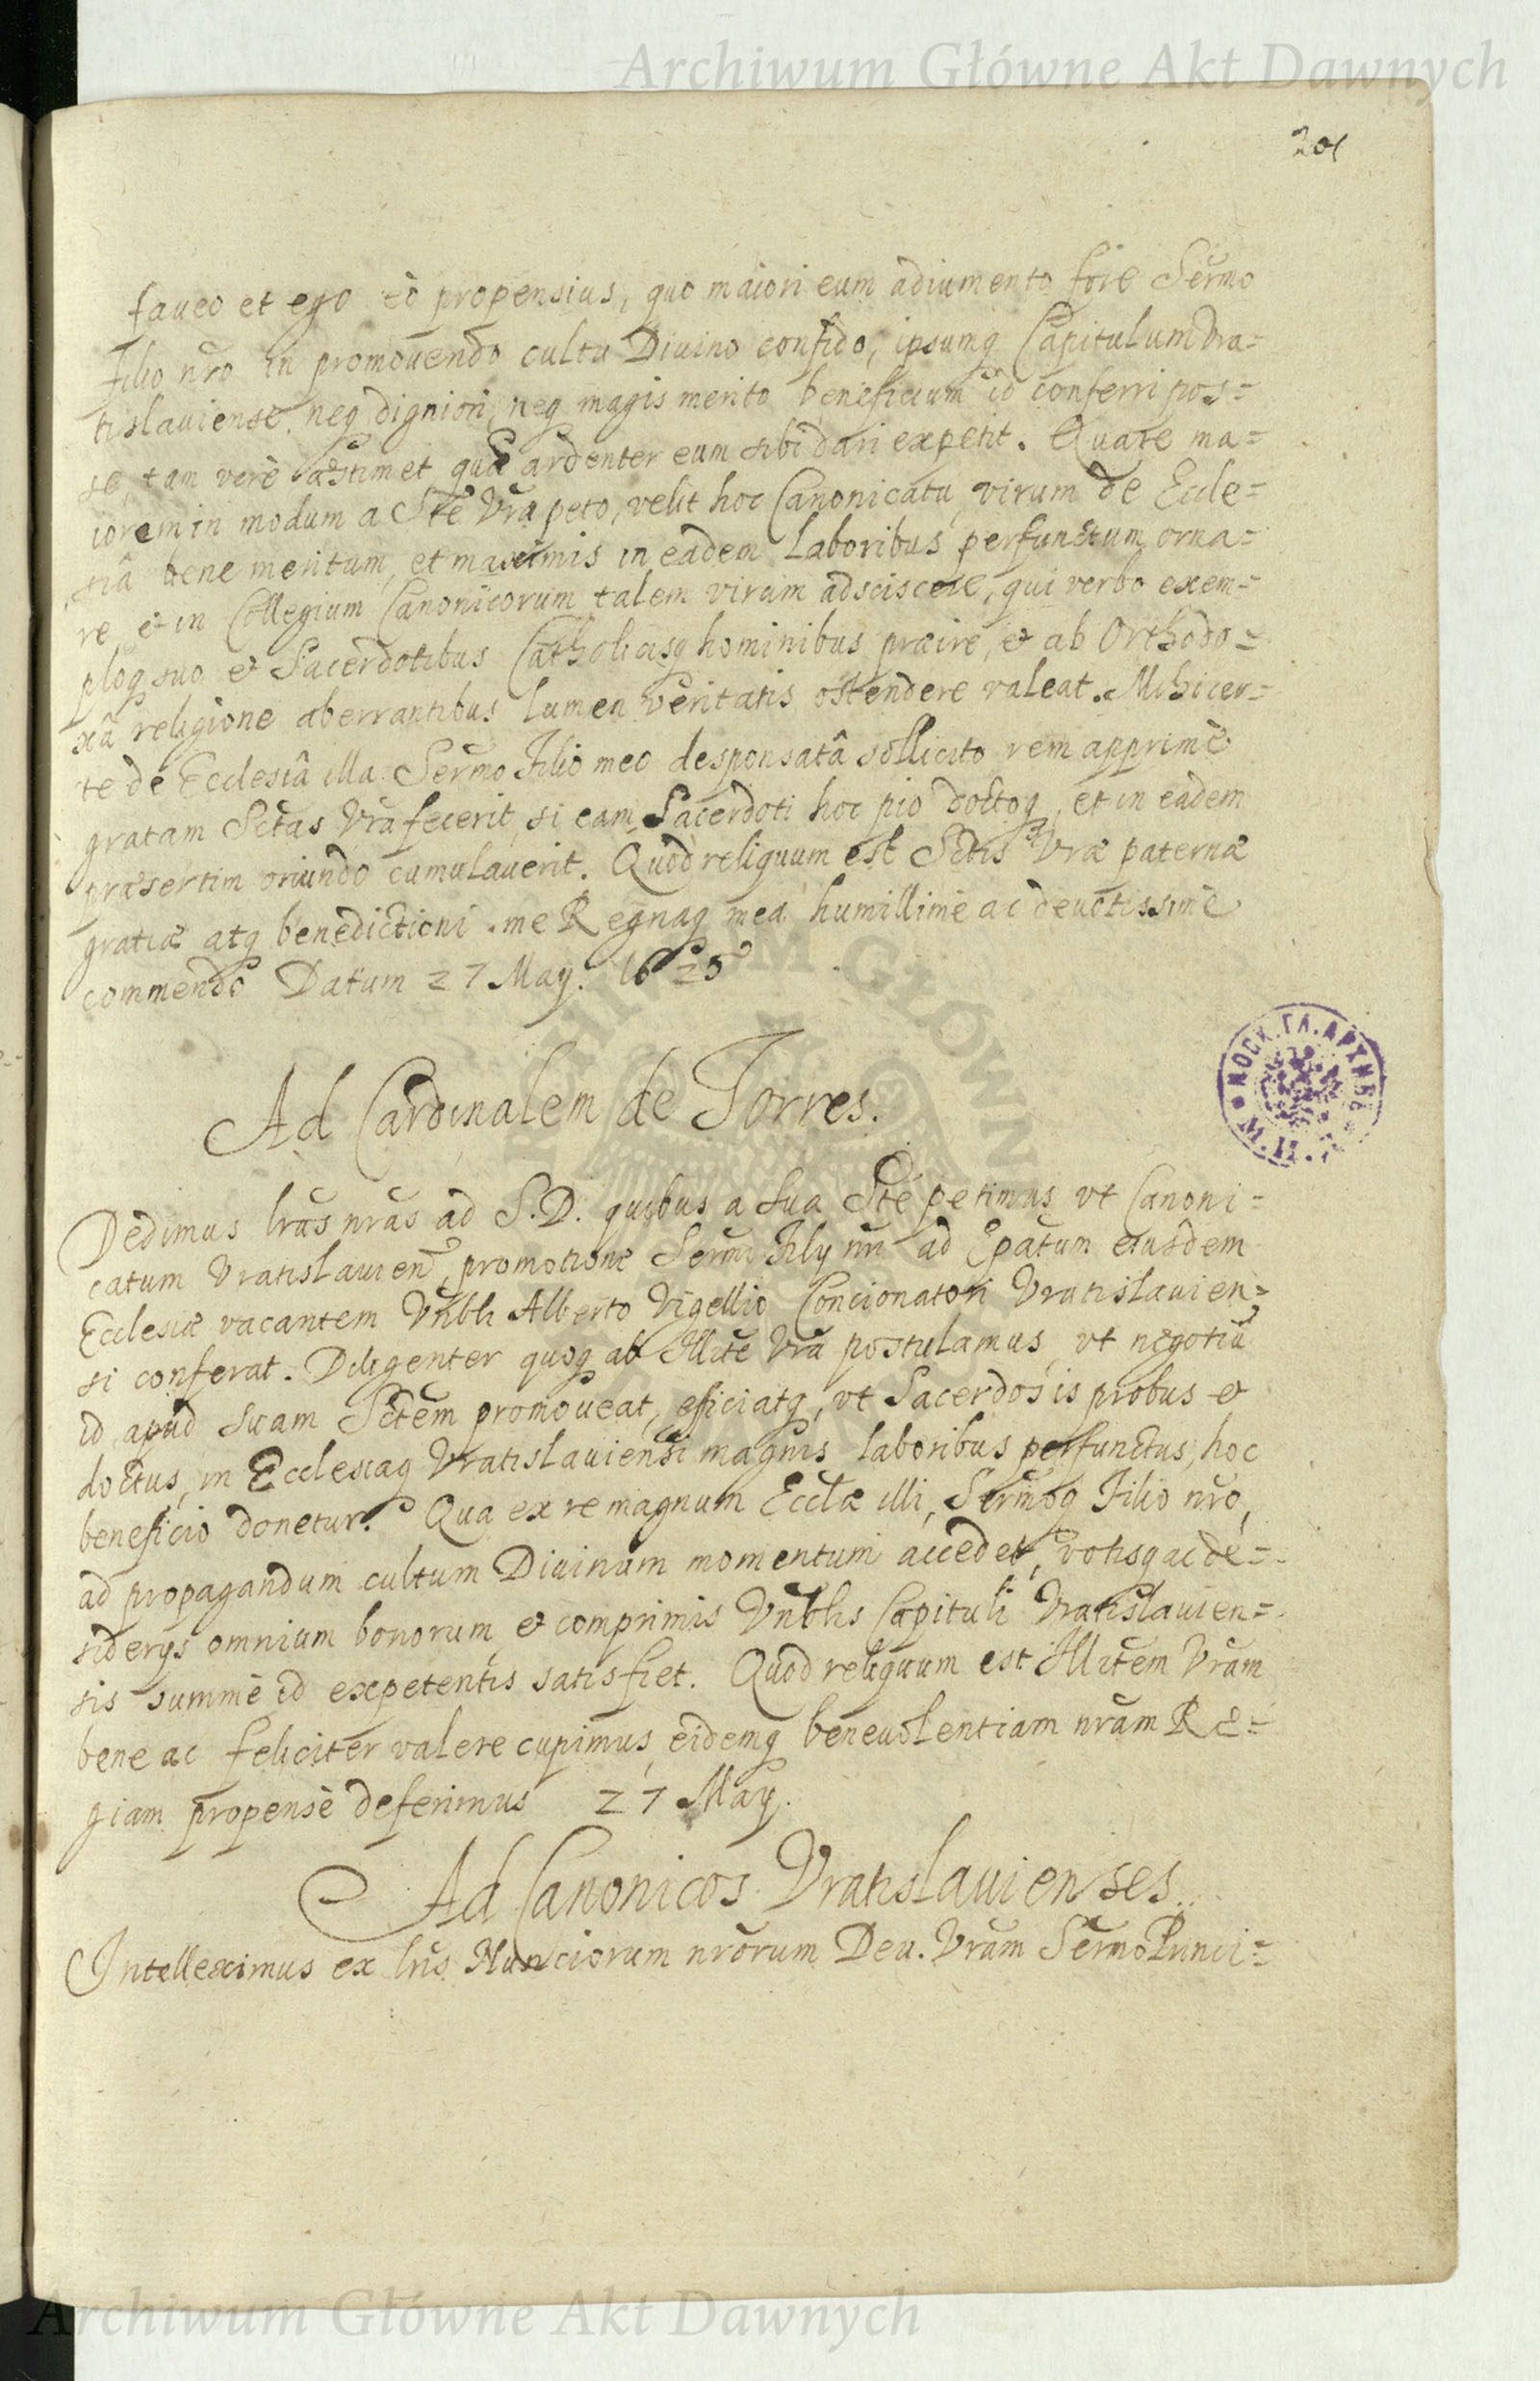 Archiwum Główne Akt Dawnych
201
faueo et ego eò propensius, quo maiori eum adiumento fore Sermo
Filio nro in promouendo cultu Diuino confido, ipsumq Capitulum Vra=
tislauiense neq digniori, neq magis merito beneficium id conferri pos=
se, tam verè æstimet quã ardenter eum sibi dari expetit. Quare ma=
iorem in modum a Ste Vra peto, velit hoc Canonicatu, virum de Eccle=
siâ bene meritum, et maximis in eadem laboribus perfunctum orna=
re, & in Collegium Canonicorum talem virum adsciscere, qui verbo exem=
ploq suo & Sacerdotibus Catholicisq hominibus præire, & ab Orthodo=
xâ religione aberrantibus lumen veritatis ostendere valeat. Mihi cer=
te de Ecclesiâ illa Sermo Filio meo desponsatâ sollicito rem apprimè
gratam Sctas Vra fecerit, si eam Sacerdoti hoc pio doctoq, et in eadem
præsertim oriundo cumulauerit. Quod reliquum est Sctis Vræ paternæ
gratiæ atq benedictioni me Regnaq mea humillimè ac deuotissimè
commendo Datum 27 May. 1625
Ad Cardinalem de Torres.
Dedimus lras nras ad S.D. quibus a Sua Ste petimus vt Canoni=
catum Vratislauien, promotione Sermi Fily nri ad Epatum eiusdem
Ecclesiæ vacantem Vnbli Alberto Vigellio Concionatori Vratislauien=
si conferat. Diligenter quoq ab Illte Vra postulamus, vt negotiũ
id apud Suam Sctem promoueat, efficiatq, vt Sacerdos is probus &
doctus, in Ecclesiaq Vratislauiensi magnis laboribus perfunctus, hoc
beneficio donetur. Qua ex re magnum Ecclæ illi, Sermoq Filio nro,
ad propagandum cultum Diuinum momentum accedet, votisq ac de=
siderys omnium bonorum & comprimis Vnblis Capituli Vratislauien=
sis summè id expetentis satisfiet. Quod reliquum est Illtem Vram
bene ac feliciter valere cupimus, eidemq beneuolentiam nram Re=
giam propensè deferimus 27 May.
Ad Canonicos Vratislauienses.
Intelleximus ex lris Nunciorum nrorum Deu. Vram Sermo Princi=
Archiwum Główne Akt Dawnych